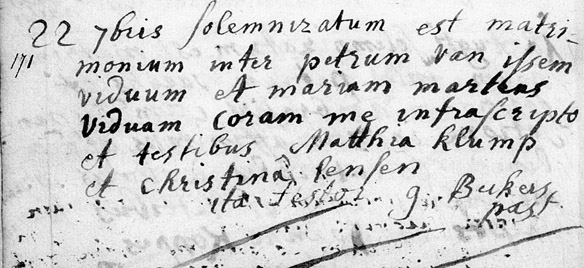 22 7bris solemnizatum est matri-
171 monium inter petrum van issem
viduum et mariam martens
viduam coram me infrascripto
et testibus Matthia klump
et christinâ Jensen
ita testor g Beckers
past